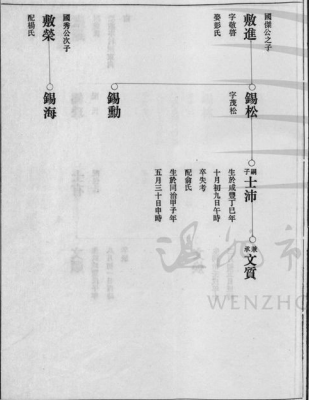 國傑公之子
敷進
字敬啓
娶彭氏
錫松
字茂松
嗣子
士沛
生於咸豐丁巳年
十月初九日午時
卒失考
配俞氏
生於同治甲子年
五月三十日申時
兼承
文質
錫勳
國秀公次子
敷榮
配楊氏
錫海
溫州市
WENZHO